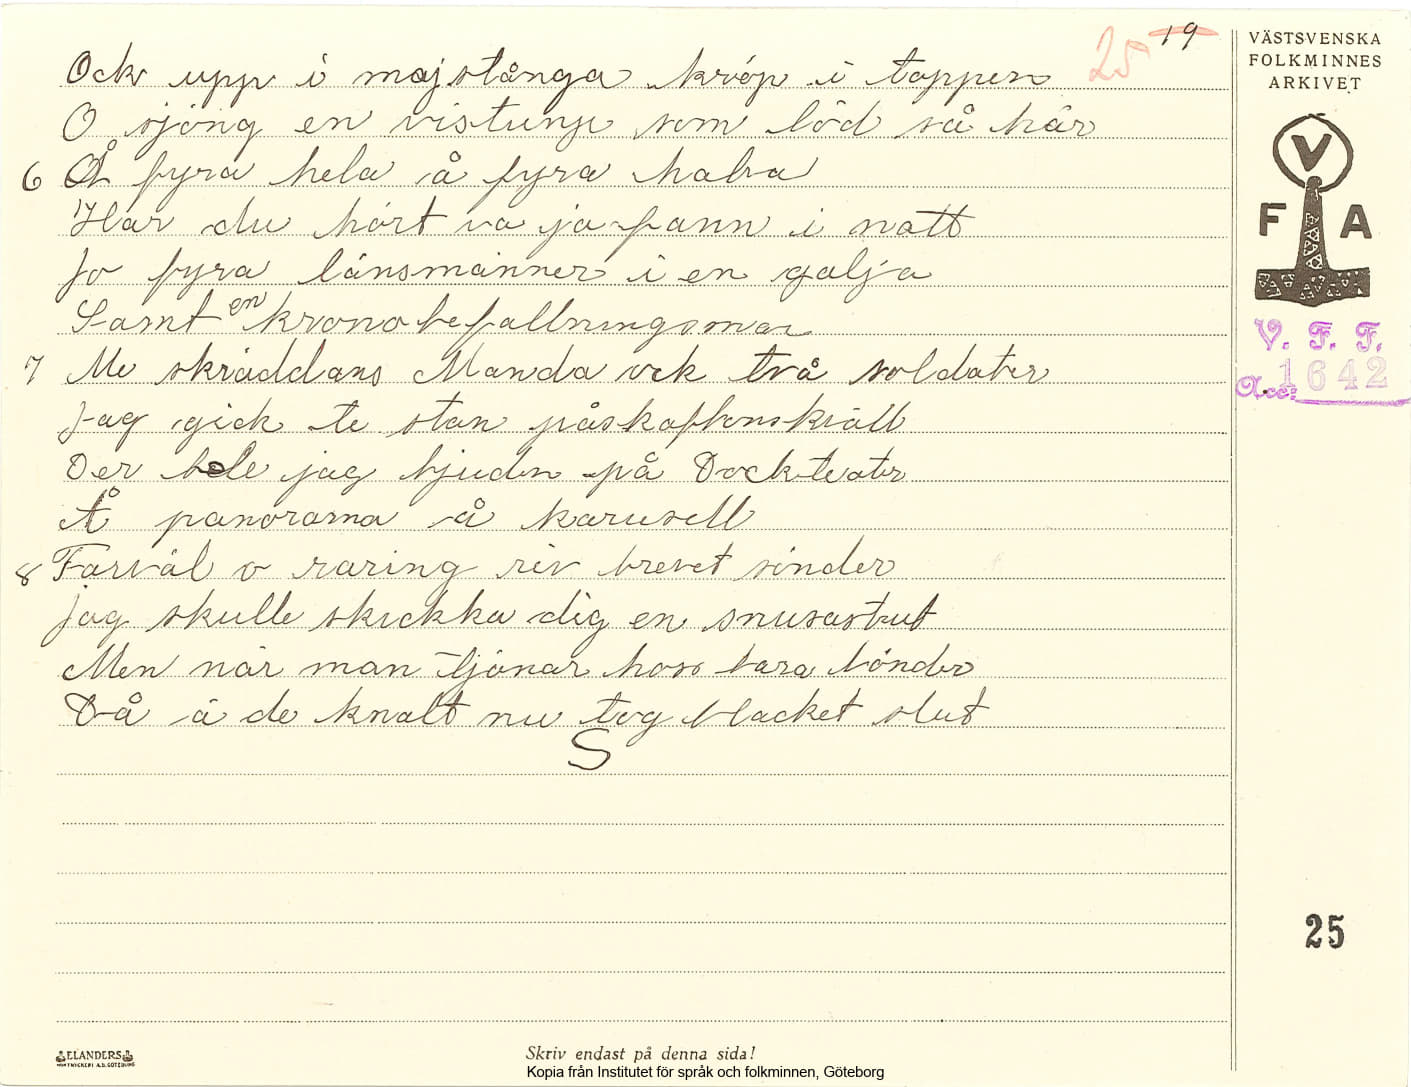 25 19
Ock upp i majstånga kröp i toppen
O sjöng en vistunp som löd så här
6 Å fyra hela å fyra halva
Har du hört va ja fann i natt
Jo fyra länsmänner i en galja
Samt en kronobefallningsman
7 Me skräddans Manda ock två soldater
Jag gick te stan påskaftonskväll
Der ble jag bjuden på Dockteater
Å panorama å karusell
8 Farväl o raring riv brevet sönder
jag skulle skickka dig en snusastrut
Men när man tjänar hoss bara bönder
Då ä de knalt nu tog blacket slut
S
VÄSTSVENSKA
FOLKMINNES
ARKIVET
V
F A
V. F. F.
Acc: 1642
25
ELANDERS
BOKTRYCKERI A.B. GÖTEBORG
Skriv endast på denna sida!
Kopia från Institutet för språk och folkminnen, Göteborg